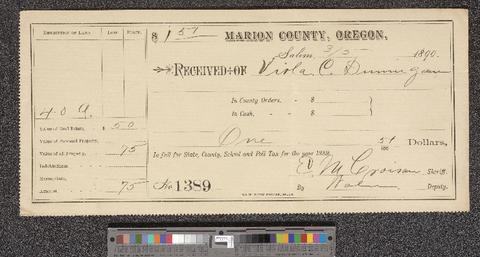 DESCRIPTION OF LAND. LOTS BLOCK.
40 a.
Value of Real Estate, $ 50
Value of Personal Property,
Value of all Property, 75
Indebtedness
Exemption,
Amount 75
$ 1 57 MARION COUNTY, OREGON,
Salem, 3/5 1890.
RECEIVED OF Viola C. Dunnigan
In County Orders, - $
In Cash, - - $
One 57/100 Dollars,
In full for State, County, School and Poll Tax for the year 1889.
No. 1389 E M Croisan Sheriff.
By Deputy.